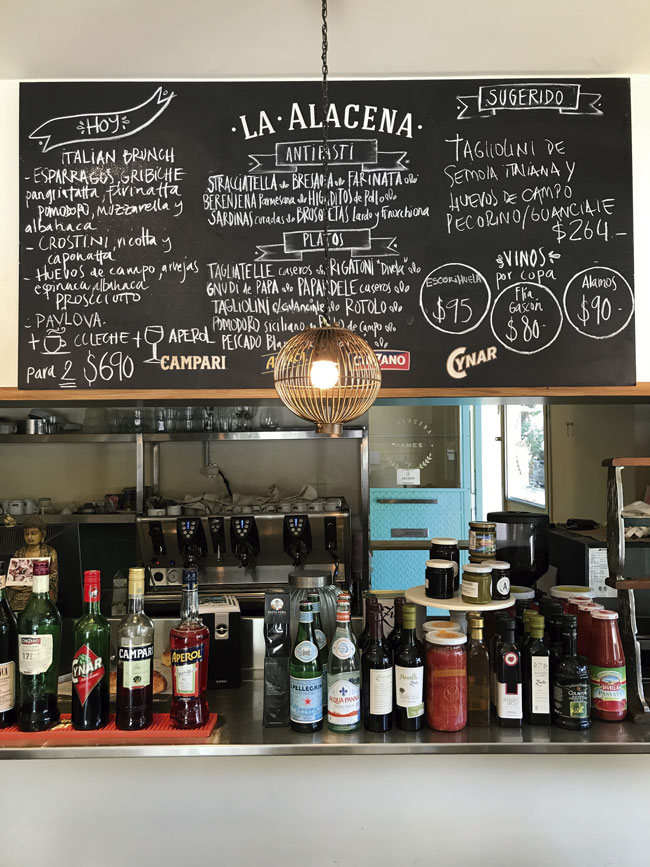 HOY
ITALIAN BRUNCH
- ESPARRAGOS GRIBICHE
pangrattatta, farinatta
pomodoro, muzzarella y
albahaca
- CROSTINI, ricotta y
caponatta
- HUEVOS de campo, arvejas
espinaca, albahaca
PROSCIUTTO
- PAVLOVA
+ CCLECHE + APEROL
para 2 $690
LA ALACENA
ANTIPASTI
STRACCIATELLA BRESAOLA FARINATA
BERENJENA Parmesana HIGADITOS de Pollo
SARDINAS curadas BROSQUETAS lardo y finocchiona
PLATOS
TAGLIATELLE caseros RIGATONI "Diveta"
GNUDI de PAPA PAPARDELE CASEROS
TAGLIOLINI c/guanciale ROTOLO
POMODORO siciliano de Campo
PESCADO
CAMPARI
CINZANO
CYNAR
SUGERIDO
TAGLIOLINI DE
SEMOLA ITALIANA Y
HUEVOS DE CAMPO
PECORINO/GUANCIALE
$264.-
VINOS
por copa
ESCORIHUELA
$95
Flia
Gascón
$80
Alamos
$90
ALACENA
CINZANO
CYNAR
CAMPARI
APEROL
S.PELLEGRINO
ACQUA PANNA